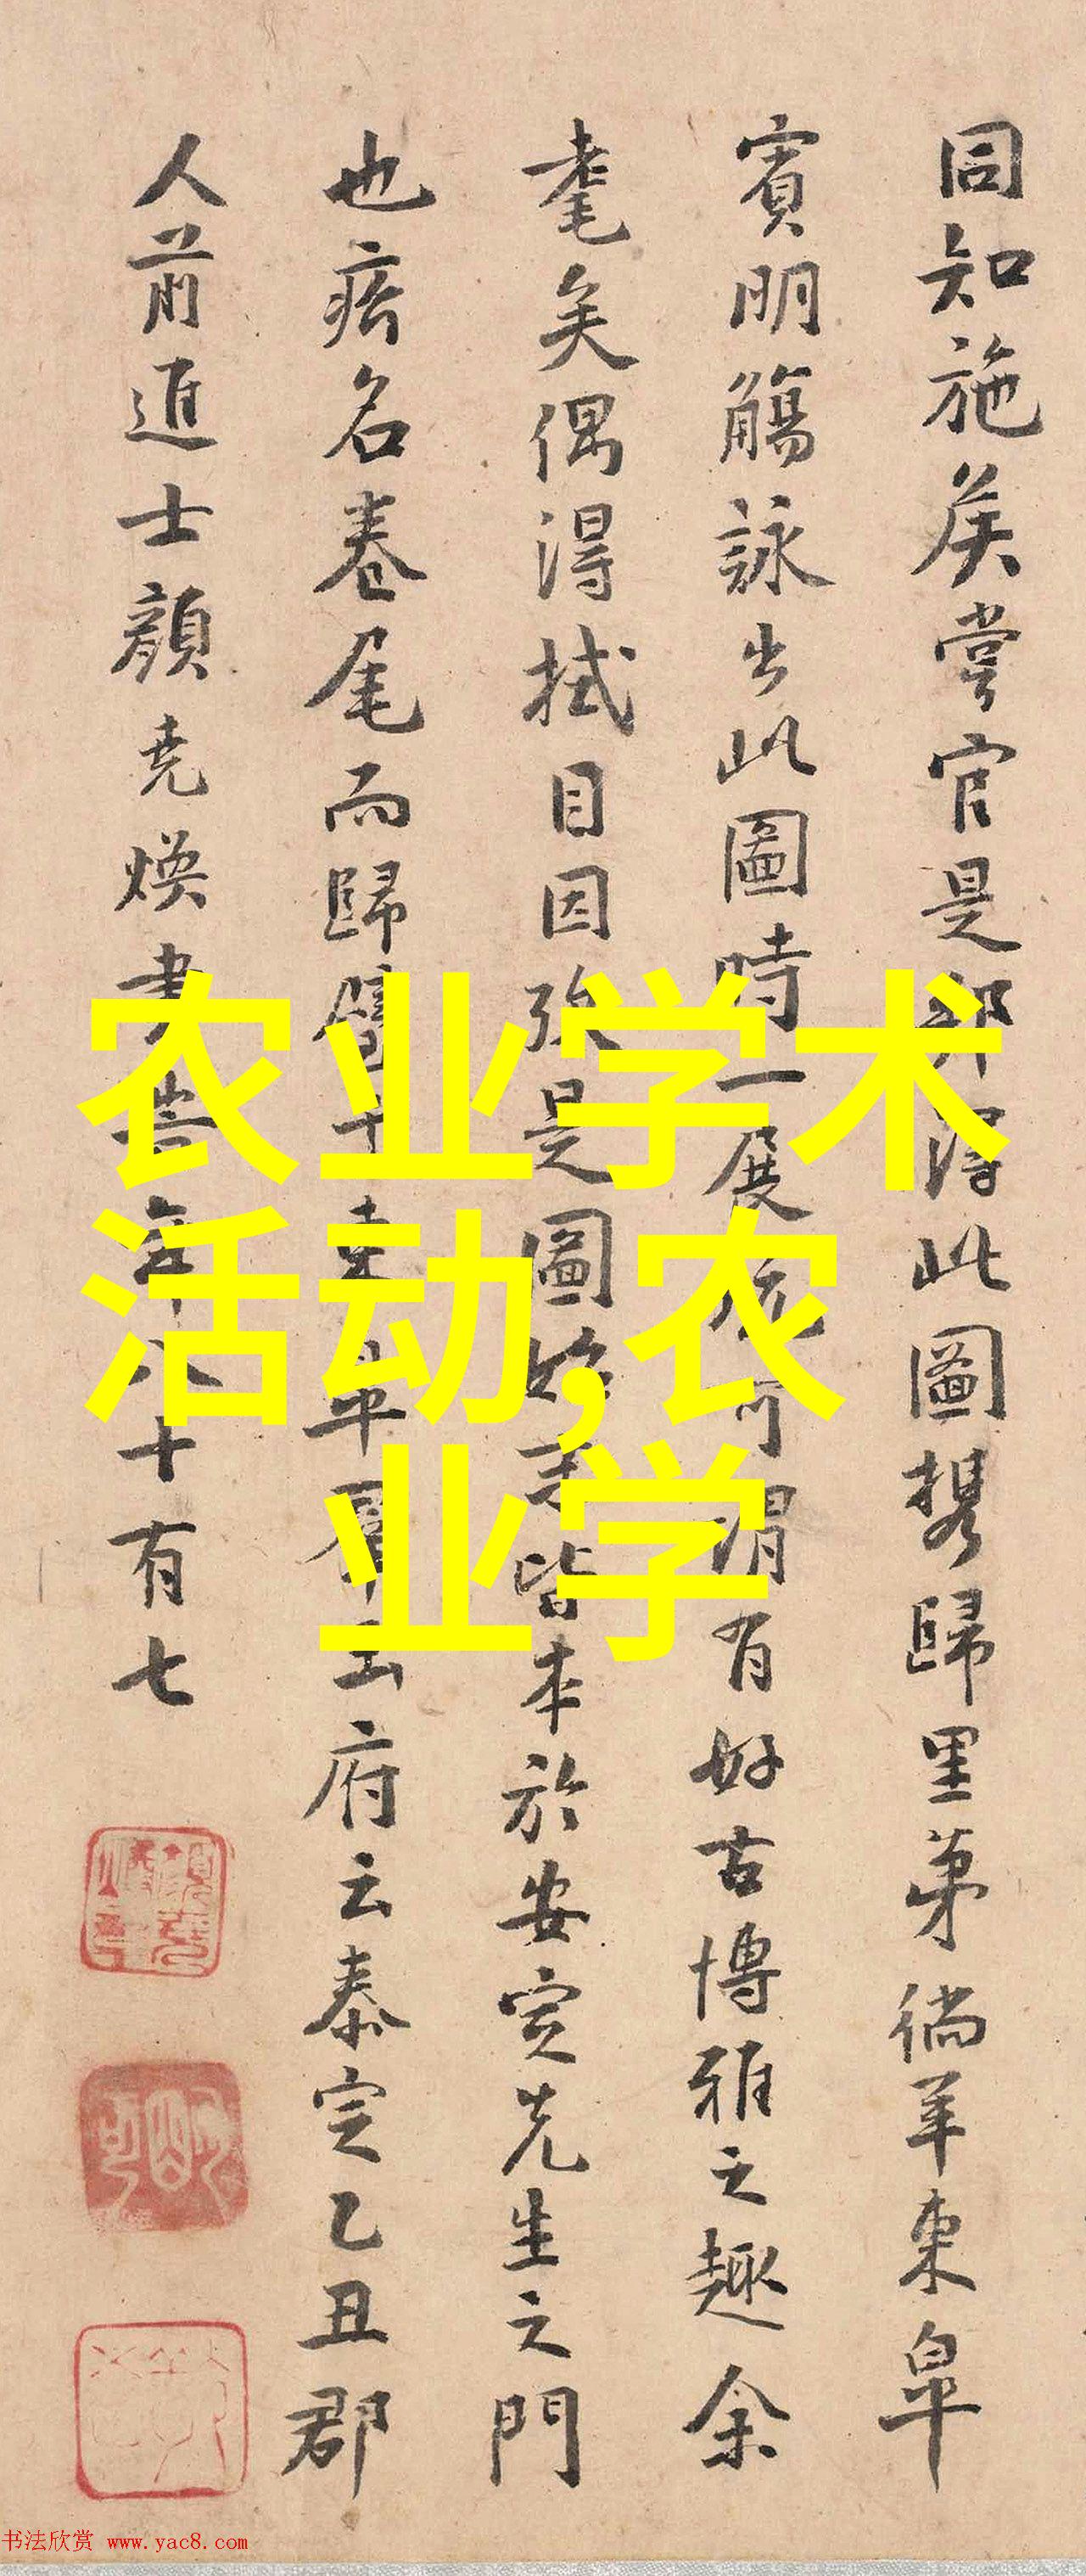 同知施矦嘗官是郡得此圖携歸里第徜羊東皐
賓明觴詠出此圖時一展玩可謂有好古博雅之趣余
耄矣偶得拭目因致是圖始末皆本於安定先生之門
也瘩名卷尾而歸
府云泰定乙丑郡
人前進士顔堯煥書
年八十有七
农业学术
活动,农
业学
书法欣赏 www.yac8.com